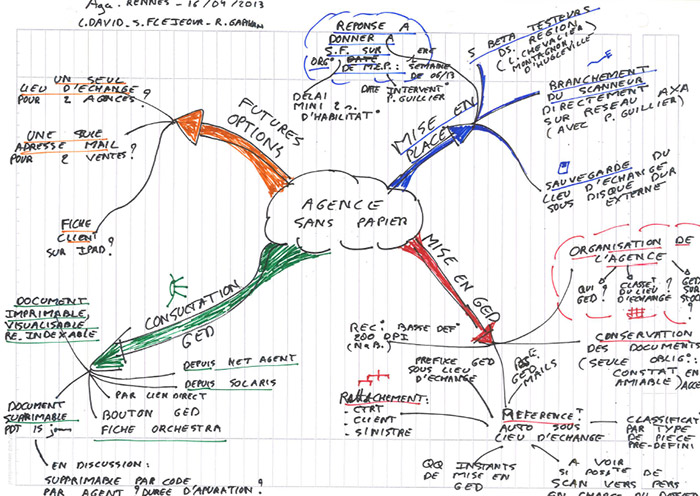 AGA. RENNES - 16/04/2013
C. DAVID - S. FLEJEOUR - R.
REPONSE A
DONNER A
S.F. SUR
ORG° DATE
DE M.E.P. : SEMAINE
DE 06/13
DELAI
MINI 2 s.
D'HABILITAT°
DATE INTERVENT°
P. GUILLIER
5 BETA TESTEURS
DS. REGION
(L. CHEVALIER
MONTAGNON
D'HUGLEVILLE
BRANCHEMENT
DU SCANNEUR
DIRECTEMENT
SUR RESEAU AXA
(AVEC P. GUILLIER)
SAUVEGARDE DU
LIEU D'ECHANGE
SOUS DISQUE DUR
EXTERNE
MISE EN
PLACE
UN SEUL
LIEU D'ECHANGE
POUR 2 AGENCES ?
UNE SEULE
ADRESSE MAIL
POUR 2 VENTES ?
FICHE
CLIENT
SUR IPAD ?
FUTURES
OPTIONS
AGENCE
SANS PAPIER
MISE EN GED
ORGANISATION DE
L'AGENCE
QUI ?
GED ?
CLASSEt
DU LIEU ?
D'ECHANGE
GED
SUR
STOCK
?
CONSERVATION
DES DOCUMENTS
(SEULE OBLIG° :
CONSTAT
AMIABLE)
REC° BASSE DEF°
200 DPI
(N&B.)
PREFIXE GED
SOUS LIEU
D'ECHANGE
GED
MAILS
RATTACHEMENT :
- CTRT
- CLIENT
- SINISTRE
REFERENCEt
AUTO SOUS
LIEU D'ECHANGE
CLASSIFICAT°
PAR TYPE
DE PIECE
PRE-DEFINI
QQ INSTANTS
DE MISE EN
GED
A VOIR
SI POSTE DE
SCAN VERS PERS
CONSULTATION
GED
DOCUMENT
IMPRIMABLE,
VISUALISABLE
RE-INDEXABLE
DEPUIS NET AGENT
DEPUIS SOLARIS
PAR LIEN DIRECT
BOUTON GED
FICHE ORCHESTRA
DOCUMENT
SUPRIMABLE
PDT 15 jours
EN DISCUSSION :
SUPPRIMABLE PAR CODE
PAR AGENT ? DUREE D'APURATION ?